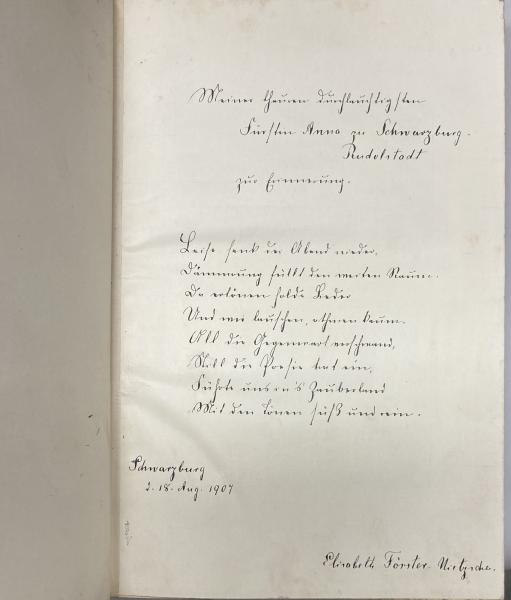 Meiner theuren durchlauchtigsten
Fürstin Anna zu Schwarzburg-
Rudolstadt
zur Erinnerung.
Leise senk der Abend nieder,
Dämmrung füllt den weiten Raum.
Da ertönen holde Lieder
Und wir lauschen, athmen kaum.
All die Gegenwart verschwand,
Still die Poesie trat ein,
Führte uns in's Zauberland
Mit den Tönen süß und rein.
Schwarzburg
d. 18. Aug. 1907
Elisabeth Förster-Nietzsche.